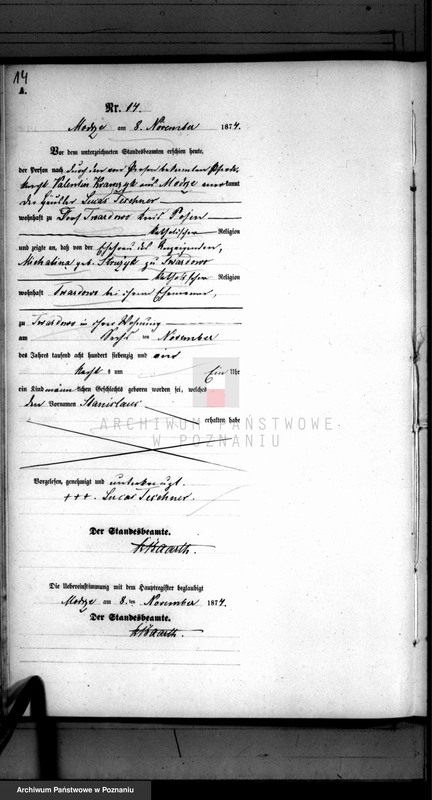 14
A.
Nr. 14.
Modze am 8. November 1874.
Vor dem unterzeichneten Standesbeamten erschien heute,
der Person nach durch den von Person bekannten
Valentin aus Modze anerkannt
der Häusler Lucas Teschner
wohnhaft zu Dorf Twardowo Kreis Posen
katholischer Religion
und zeigte an, daß von der Ehefrau des Anzeigenden,
Michalina geb. zu Twardowo
katholischer Religion
wohnhaft Twardowo bei ihrem Ehemanne,
zu Twardowo in ihrer Wohnung
am ten November
des Jahres tausend acht hundert siebenzig und vier
Nachts um Ein Uhr
ein Kind männlichen Geschlechts geboren worden sei, welches
den Vornamen Stanislaus
erhalten habe
ARCHIWUM PAŃSTWOWE
W POZNANIU
Vorgelesen, genehmigt und unterkreuzt.
+++. Lucas Teschner.
Der Standesbeamte.
Die Uebereinstimmung mit dem Hauptregister beglaubigt
Modze am 8. ten November 1874.
Der Standesbeamte.
Archiwum Państwowe w Poznaniu